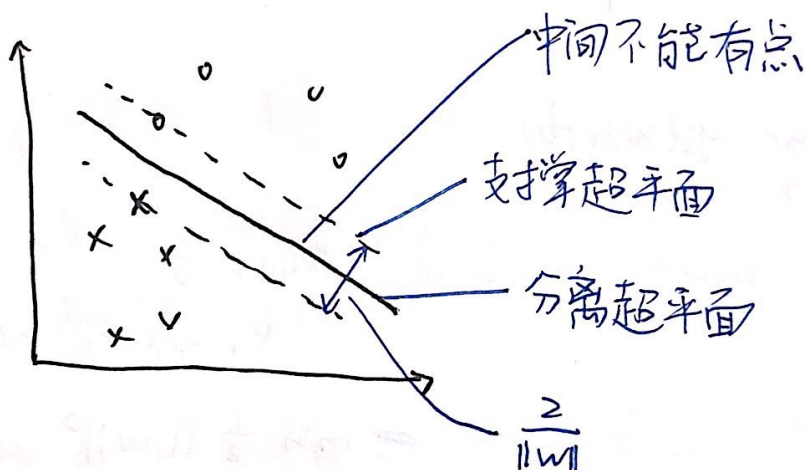 中间不能有点
支撑超平面
分离超平面
2
||w||